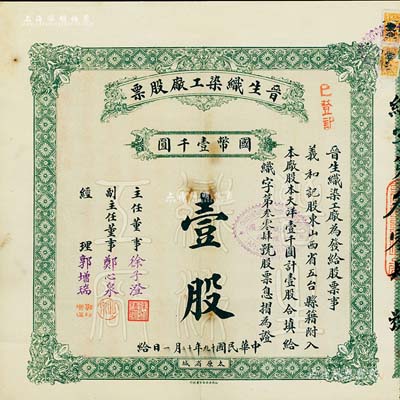 晋生織染工廠股票
國幣壹千圓
已登記
晋生織染工廠為發給股票事
義和記股東山西省五台縣籍附入
本廠股本大洋壹千圓計壹股合填給
織字第叁零肆號股票息摺為證
壹股
主任董事 徐子澄
副主任董事 鄭心泉
經理 郭增瑞
中華民國十九年十月一日給
太原省城